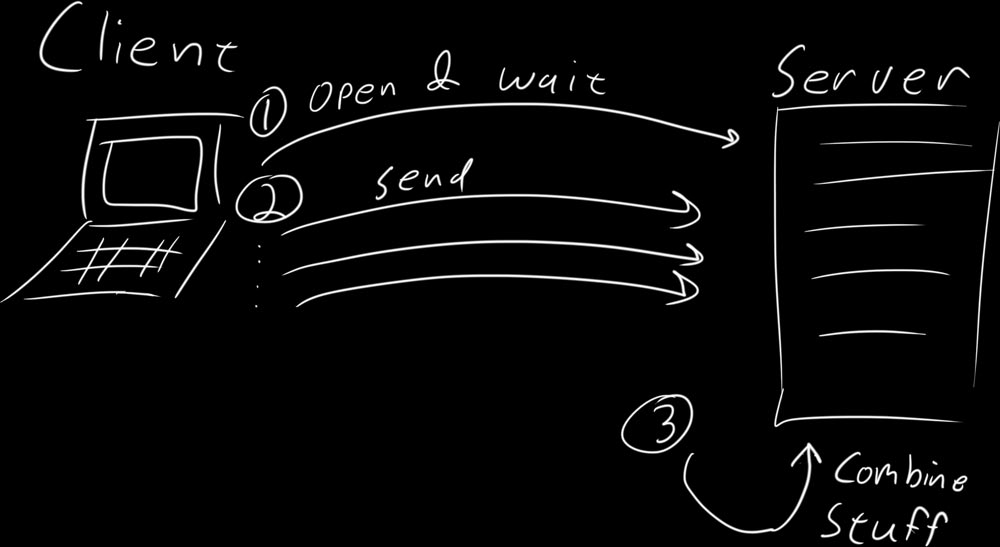 Client
Server
① open & wait
② send
③
Combine
Stuff